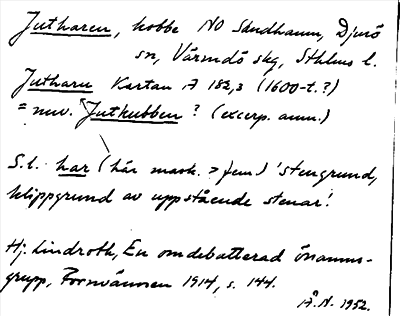 Jutharen, kobbe NO Sandhamn, Djurö
sn, Värmdö skg, Sthlms l.
Jutharu Kartan A 182,3 (1600-t.?)
= nuv. Jutkubben? (excerp. anm.)
S.l. har (här mask. > fem) 'stengrund,
klippgrund av uppstående stenar'.
Hj. Lindroth, En omdebatterad önamns-
grupp, Fornvännen 1914, s. 144.
Å.N. 1952.